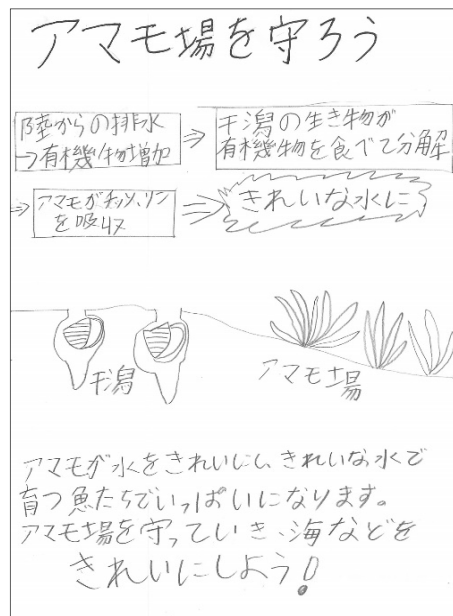 アマモ場を守ろう
陸からの排水
→有機物増加
⇒
干潟の生き物が
有機物を食べて分解
⇒
アマモがチッソ、リン
を吸収
⇒
きれいな水に
干潟
アマモ場
アマモが水をきれいにし、きれいな水で
育つ魚たちでいっぱいになります。
アマモ場を守っていき、海などを
きれいにしよう!